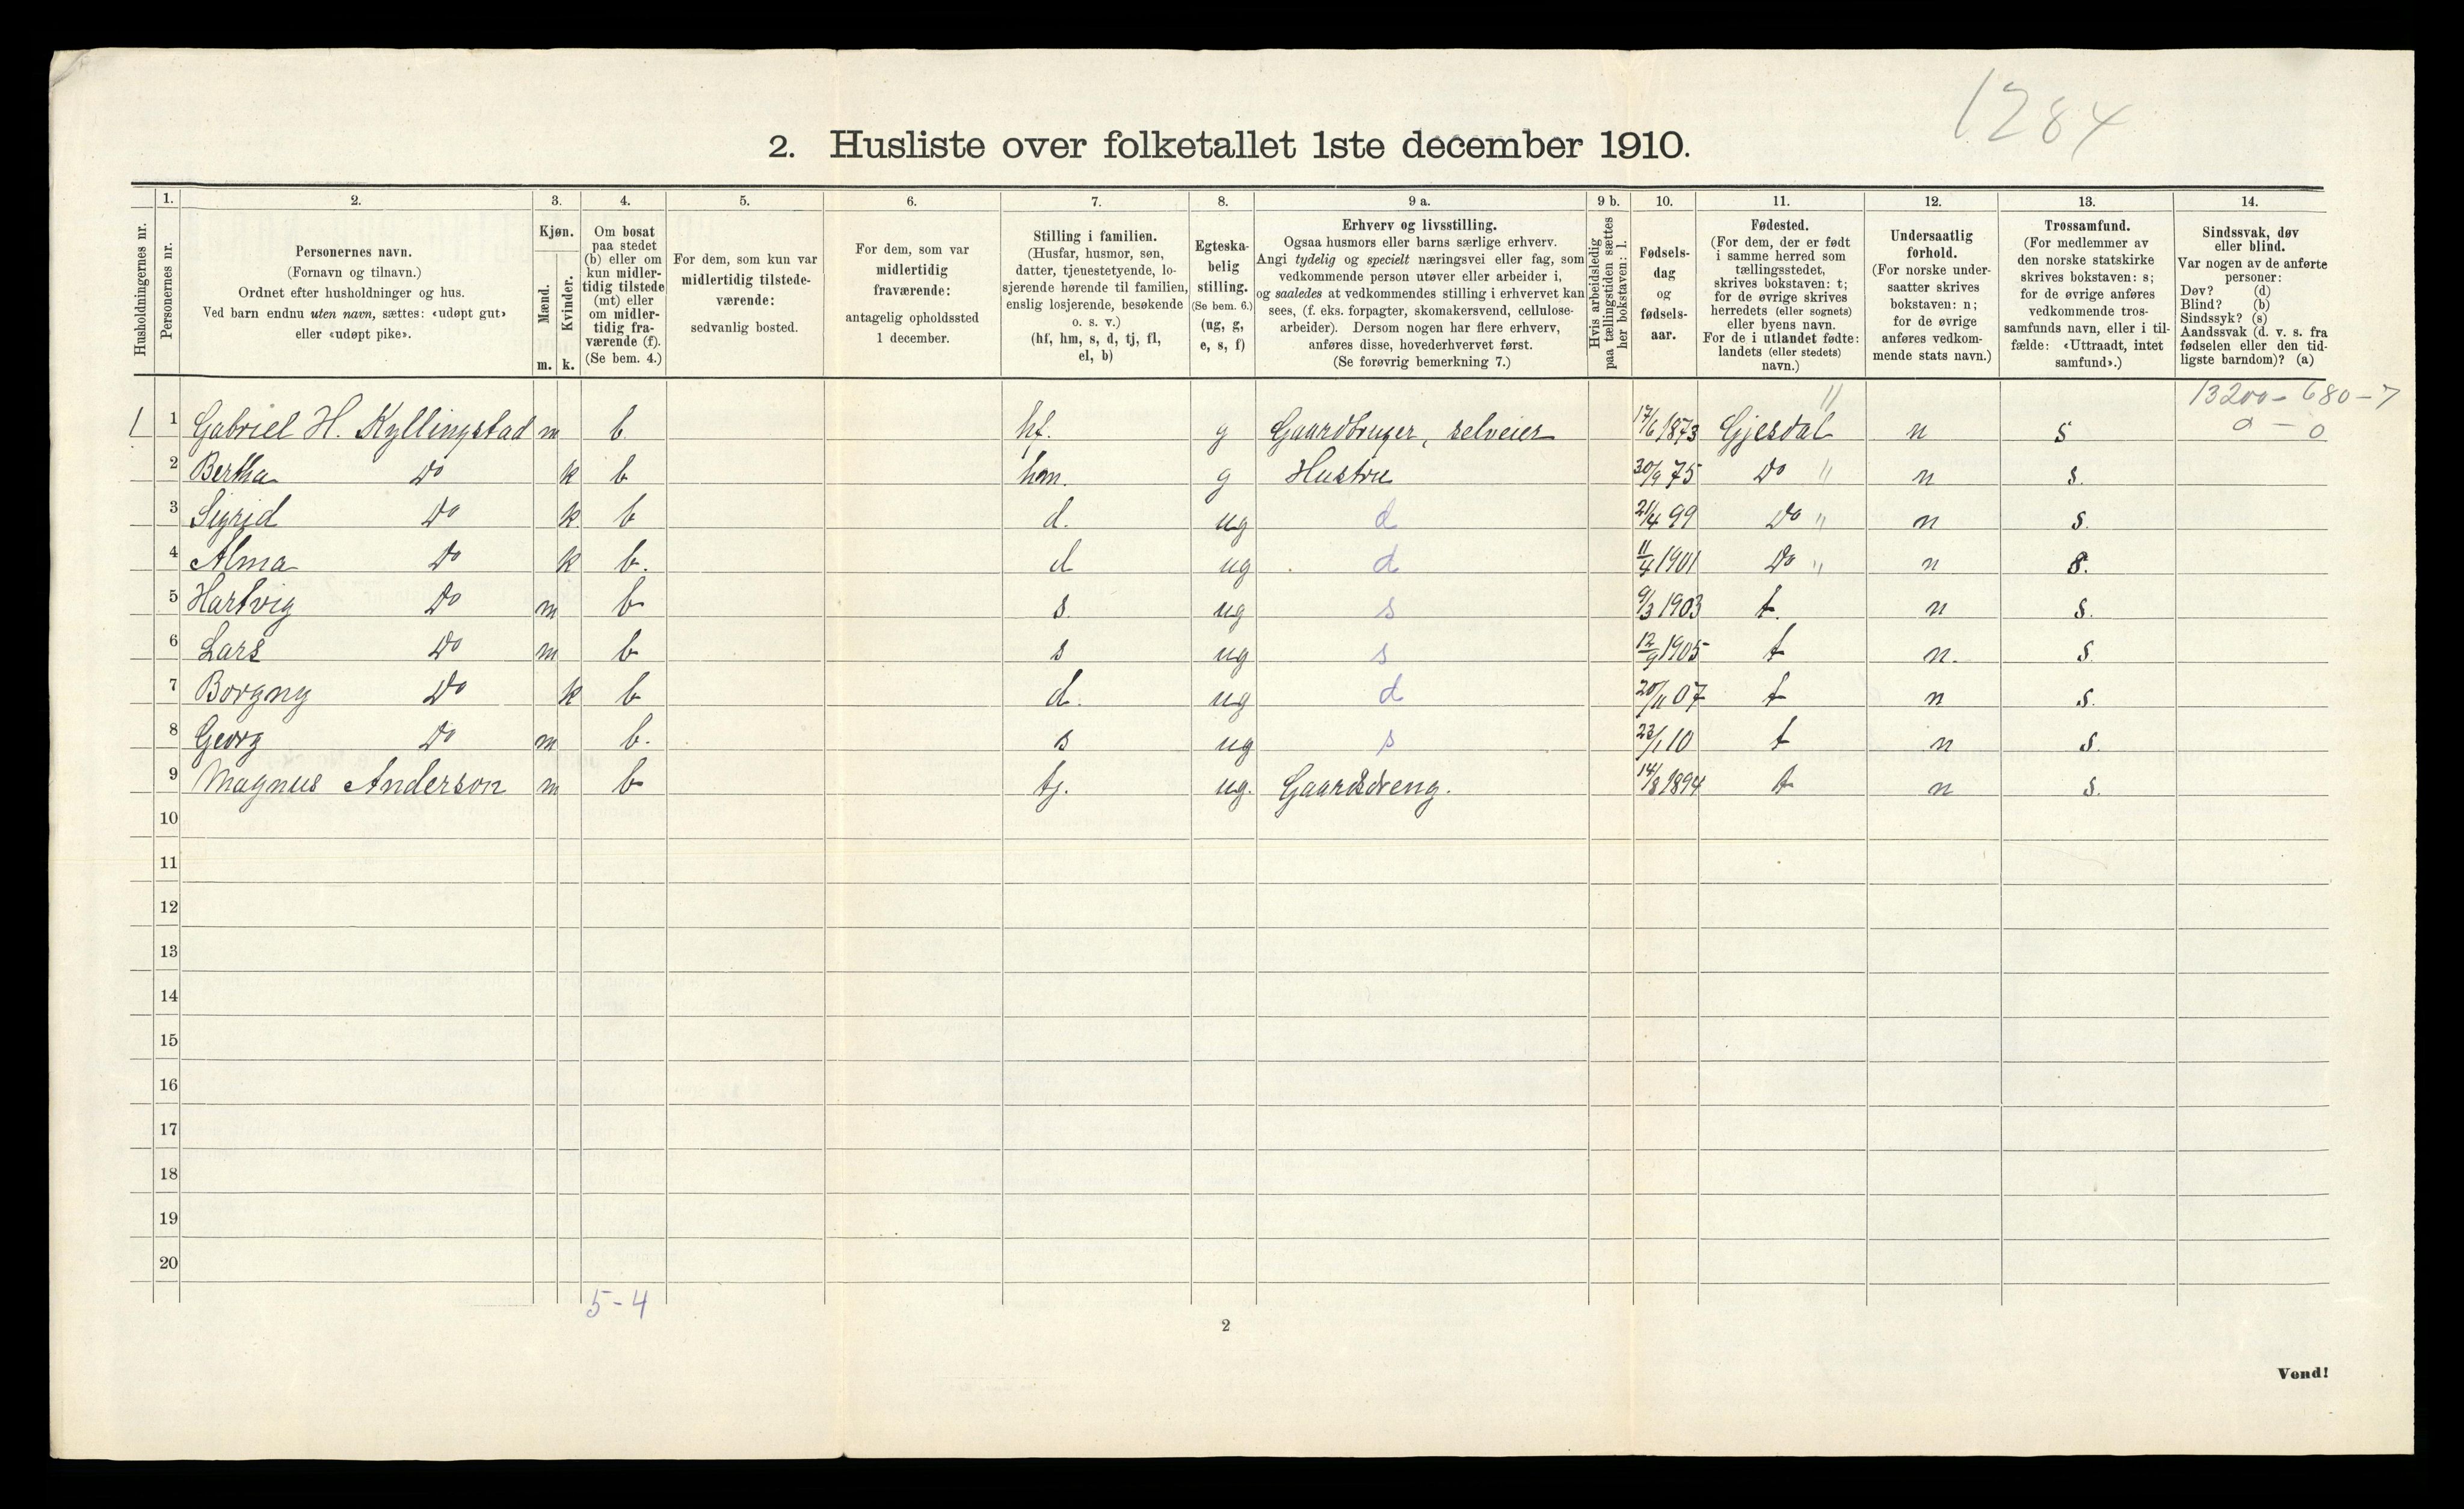 1284
2. Husliste over folketallet 1ste december 1910.
Husholdningernes nr.
1.
Personernes nr.
2.
Personernes navn.
(Fornavn og tilnavn.)
Ordnet efter husholdninger og hus.
Ved barn endnu uten navn, sættes: «udøpt gut»
eller «udøpt pike».
3.
Kjøn.
Mænd.
Kvinder.
m. k.
4.
Om bosat
paa stedet
(b) eller om
kun midler-
tidig tilstede
(mt) eller
om midler-
tidig fra-
værende (f).
(Se bem. 4.)
5.
For dem, som kun var
midlertidig tilstede-
værende:
sedvanlig bosted.
6.
For dem, som var
midlertidig
fraværende:
antagelig opholdssted
1 december.
7.
Stilling i familien.
(Husfar, husmor, søn,
datter, tjenestetyende, lo-
sjerende hørende til familien,
enslig losjerende, besøkende
o. s. v.)
(hf, hm, s, d, tj, fl,
el, b)
8.
Egteska-
belig
stilling.
(Se bem. 6.)
(ug, g,
e, s, f)
9 a.
Erhverv og livsstilling.
Ogsaa husmors eller barns særlige erhverv.
Angi tydelig og specielt næringsvei eller fag, som
vedkommende person utøver eller arbeider i,
og saaledes at vedkommendes stilling i erhvervet kan
sees, (f. eks. forpagter, skomakersvend, cellulose-
arbeider). Dersom nogen har flere erhverv,
anføres disse, hovederhvervet først.
(Se forøvrig bemerkning 7.)
9 b.
Hvis arbeidsledig
paa tællingstiden sættes
her bokstaven: l.
10.
Fødsels-
dag
og
fødsels-
aar.
11.
Fødested.
(For dem, der er født
i samme herred som
tællingsstedet,
skrives bokstaven: t;
for de øvrige skrives
herredets (eller sognets)
eller byens navn.
For de i utlandet fødte:
landets (eller stedets)
navn.)
12.
Undersaatlig
forhold.
(For norske under-
saatter skrives
bokstaven: n;
for de øvrige
anføres vedkom-
mende stats navn.)
13.
Trossamfund.
(For medlemmer av
den norske statskirke
skrives bokstaven: s;
for de øvrige anføres
vedkommende tros-
samfunds navn, eller i til-
fælde: «Uttraadt, intet
samfund».)
14.
Sindssvak, døv
eller blind.
Var nogen av de anførte
personer:
Døv? (d)
Blind? (b)
Sindssyk? (s)
Aandssvak (d. v. s. fra
fødselen eller den tid-
ligste barndom)? (a)
13200 - 680 - 7
0 - 0
1 1 Gabriel H. Kyllingstad m b hf. g Gaardbruger, selveier 17/6 1873 Gjesdal " n s
2 Bertha Do k b hm. g Hustru 30/9 75 Do " n s.
3 Sigrid Do k b d. ug d 21/4 99 Do " n s.
4 Alma Do k b. d ug d 11/4 1901 Do " n s.
5 Hartvig Do m b s. ug s 9/3 1903 t. n s.
6 Lars Do m b s ug s 12/9 1905 t n. s
7 Borgny Do k b d. ug d 20/11 07 t n s.
8 Georg Do m b. s ug s 23/1 10 t n s.
9 Magnus Anderson m b tj. ug. Gaardsdreng. 14/8 1894 t n s.
10
11
12
13
14
15
16
17
18
19
20
5-4
2
Vend!